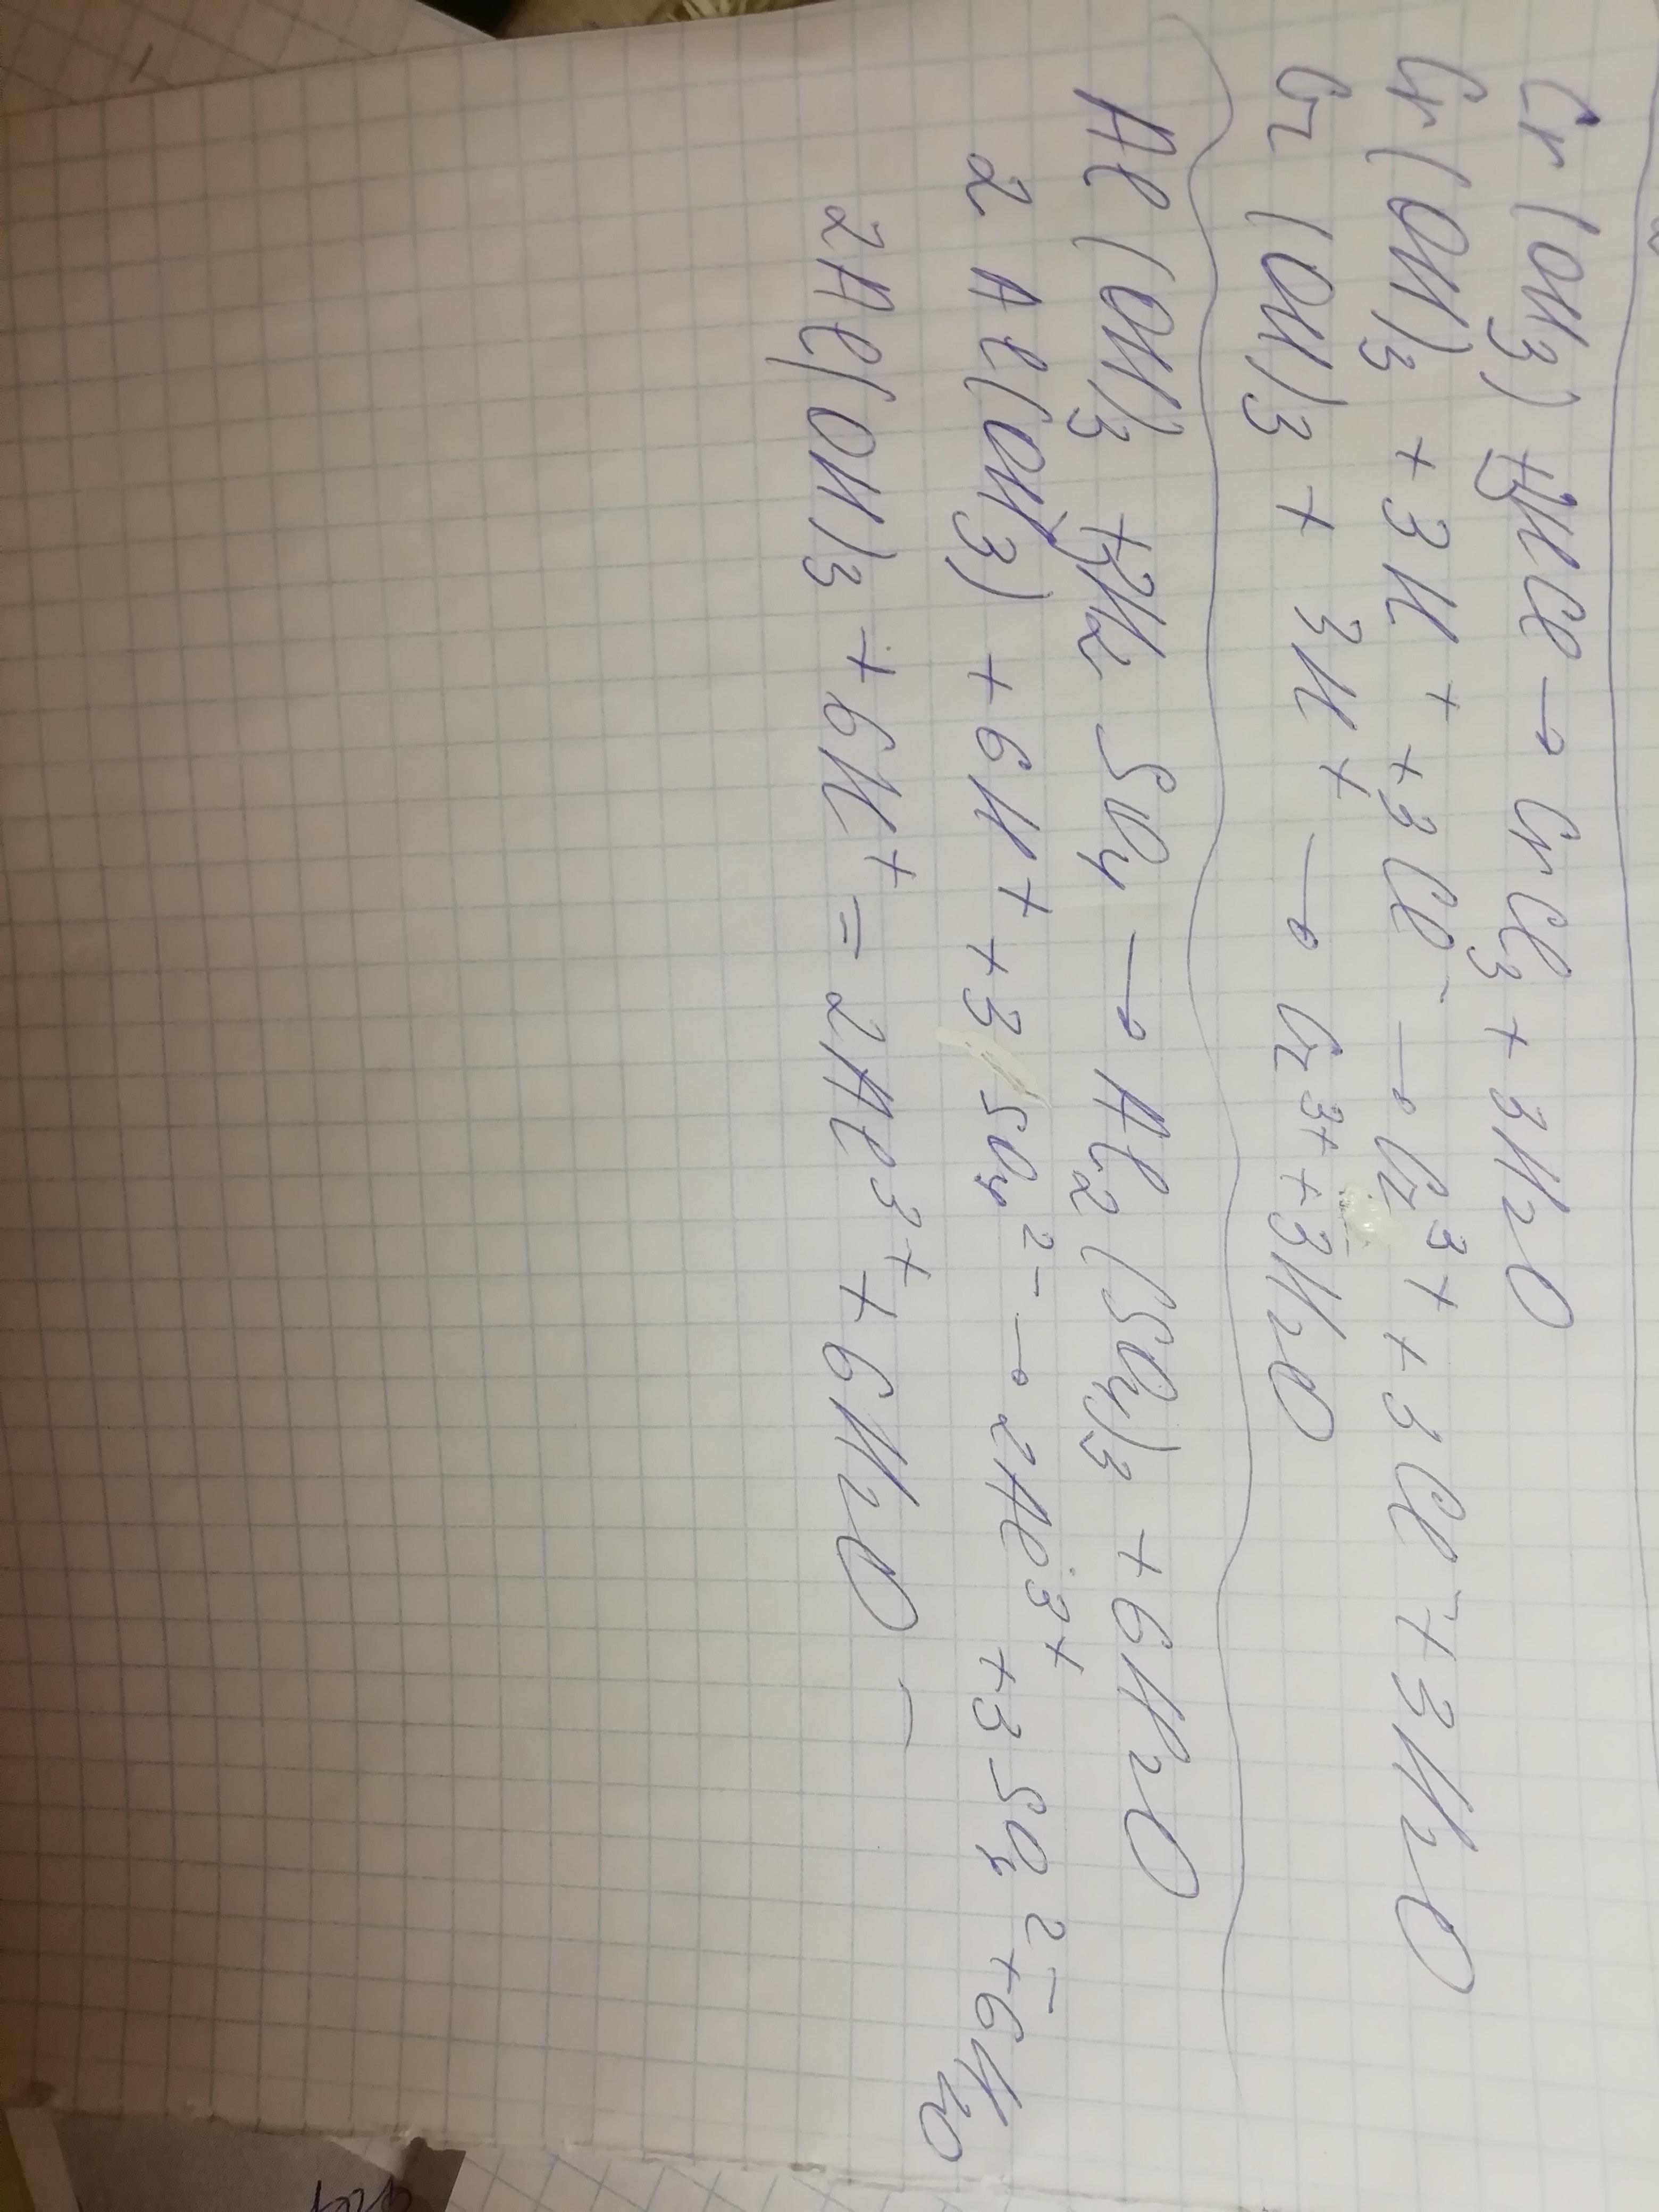 Cr(OH3) +3HCl → CrCl3 + 3H2O
Cr(OH)3 + 3H+ + 3Cl- → Cr3+ + 3Cl- + 3H2O
Cr(OH)3 + 3H+ → Cr3+ + 3H2O
Al(OH)3 +3H2SO4 → Al2(SO4)3 + 6H2O
2Al(OH3) + 6H+ + 3SO4 2- → 2Al3+ + 3SO4 2- + 6H2O
2Al(OH)3 + 6H+ = 2Al3+ + 6H2O -